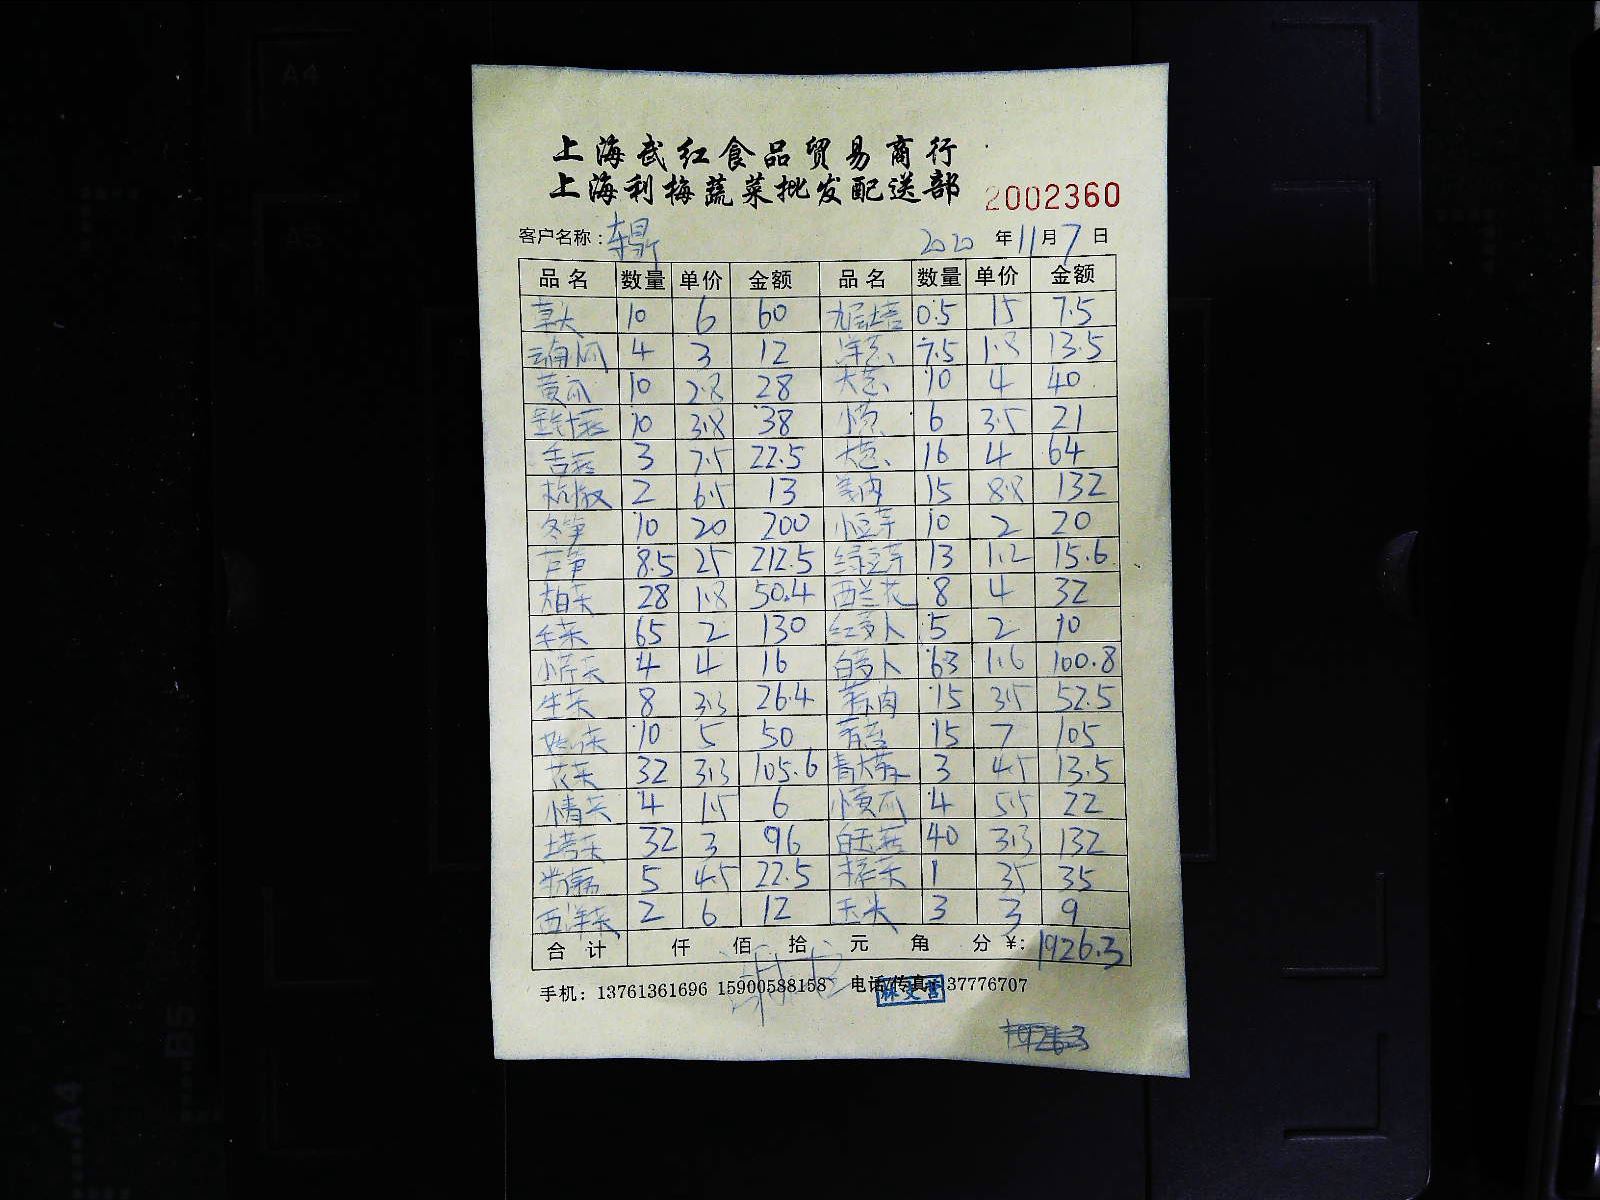 上海武红食品贸易商行
上海利梅蔬菜批发配送部 2002360
客户名称： 2020 年 11 月 7 日
品名 数量 单价 金额 品名 数量 单价 金额
草头 10 6 60 九层塔 0.5 15 7.5
4 3 12 洋葱 7.5 1.8 13.5
黄瓜 10 2.8 28 大葱 10 4 40
10 3.8 38 小葱 6 3.5 21
香菇 3 7.5 22.5 16 4 64
杭椒 2 6.5 13 姜肉 15 8.8 132
冬笋 10 20 200 小豆芽 10 2 20
芦笋 8.5 25 212.5 绿豆芽 13 1.2 15.6
大白菜 28 1.8 50.4 西兰花 8 4 32
65 2 130 红萝卜 5 2 10
小芹菜 4 4 16 白萝卜 63 1.6 100.8
生菜 8 3.3 26.4 15 3.5 52.5
10 5 50 15 7 105
花菜 32 3.3 105.6 3 4.5 13.5
4 1.5 6 小黄瓜 4 5.5 22
塔菜 32 3 96 白玉菇 40 3.3 132
5 4.5 22.5 1 35 35
西洋菜 2 6 12 3 3 9
合计 仟 佰 拾 元 角 分 ¥: 1926.3
手机：13761361696 15900588158 电话/传真 37776707
1926.3